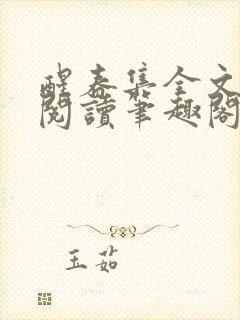 醒春集全文
閱讀筆趣閣
玉茹